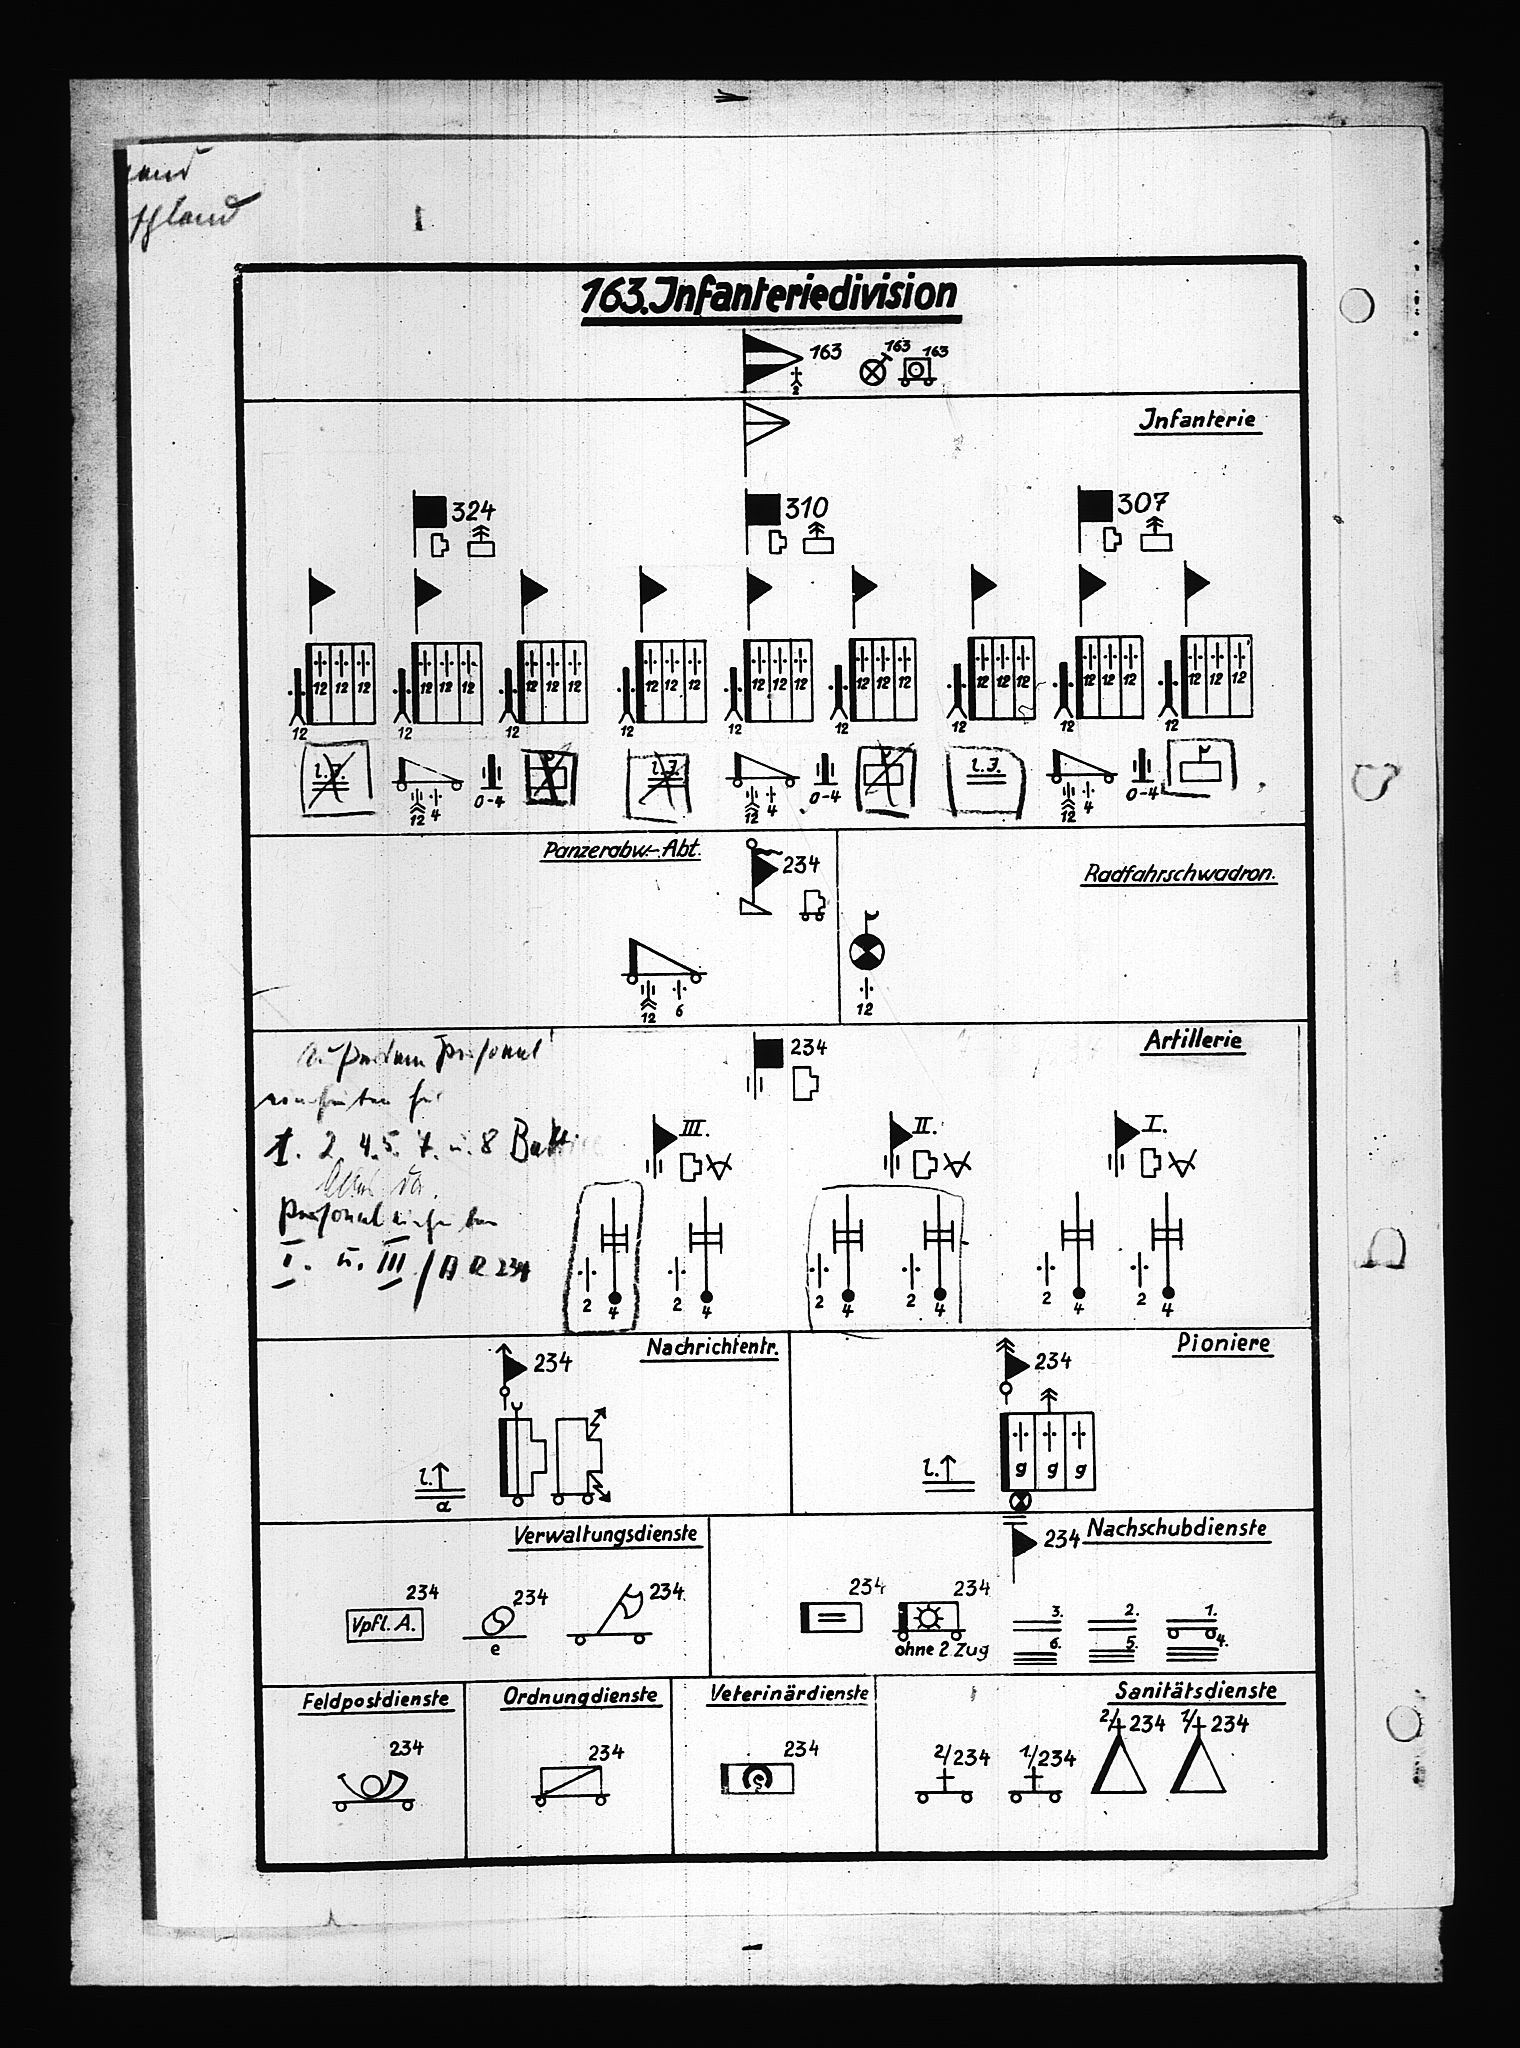 163. Infanteriedivision
163 163 163
2
Infanterie
324 310 307
12 12 12 12 12 12 12 12 12 12 12 12 12 12 12 12 12 12 12 12 12 12 12 12 12 12 12
12 12 12 12 12 12 12 12 12
l. I. l. I. l. I.
12 4 0-4 12 4 0-4 12 4 0-4
Panzerabw.-Abt.
234
12 6
Radfahrschwadron.
12
Artillerie
234
Außerdem Personal
für
1. 2. 4. 5. 7. u. 8 Batt
I. u. III / A R 234
III. II. I.
2 4 2 4 2 4 2 4 2 4 2 4
Nachrichtentr.
234
l.
a
Pioniere
234
l.
g g g
Verwaltungsdienste
234 234 234
Vpfl. A.
e
Nachschubdienste
234
234 234
ohne 2. Zug
3. 2. 1.
6. 5. 4.
Feldpostdienste
234
Ordnungdienste
234
Veterinärdienste
234
Sanitätsdienste
2/234 1/234
2/234 1/234